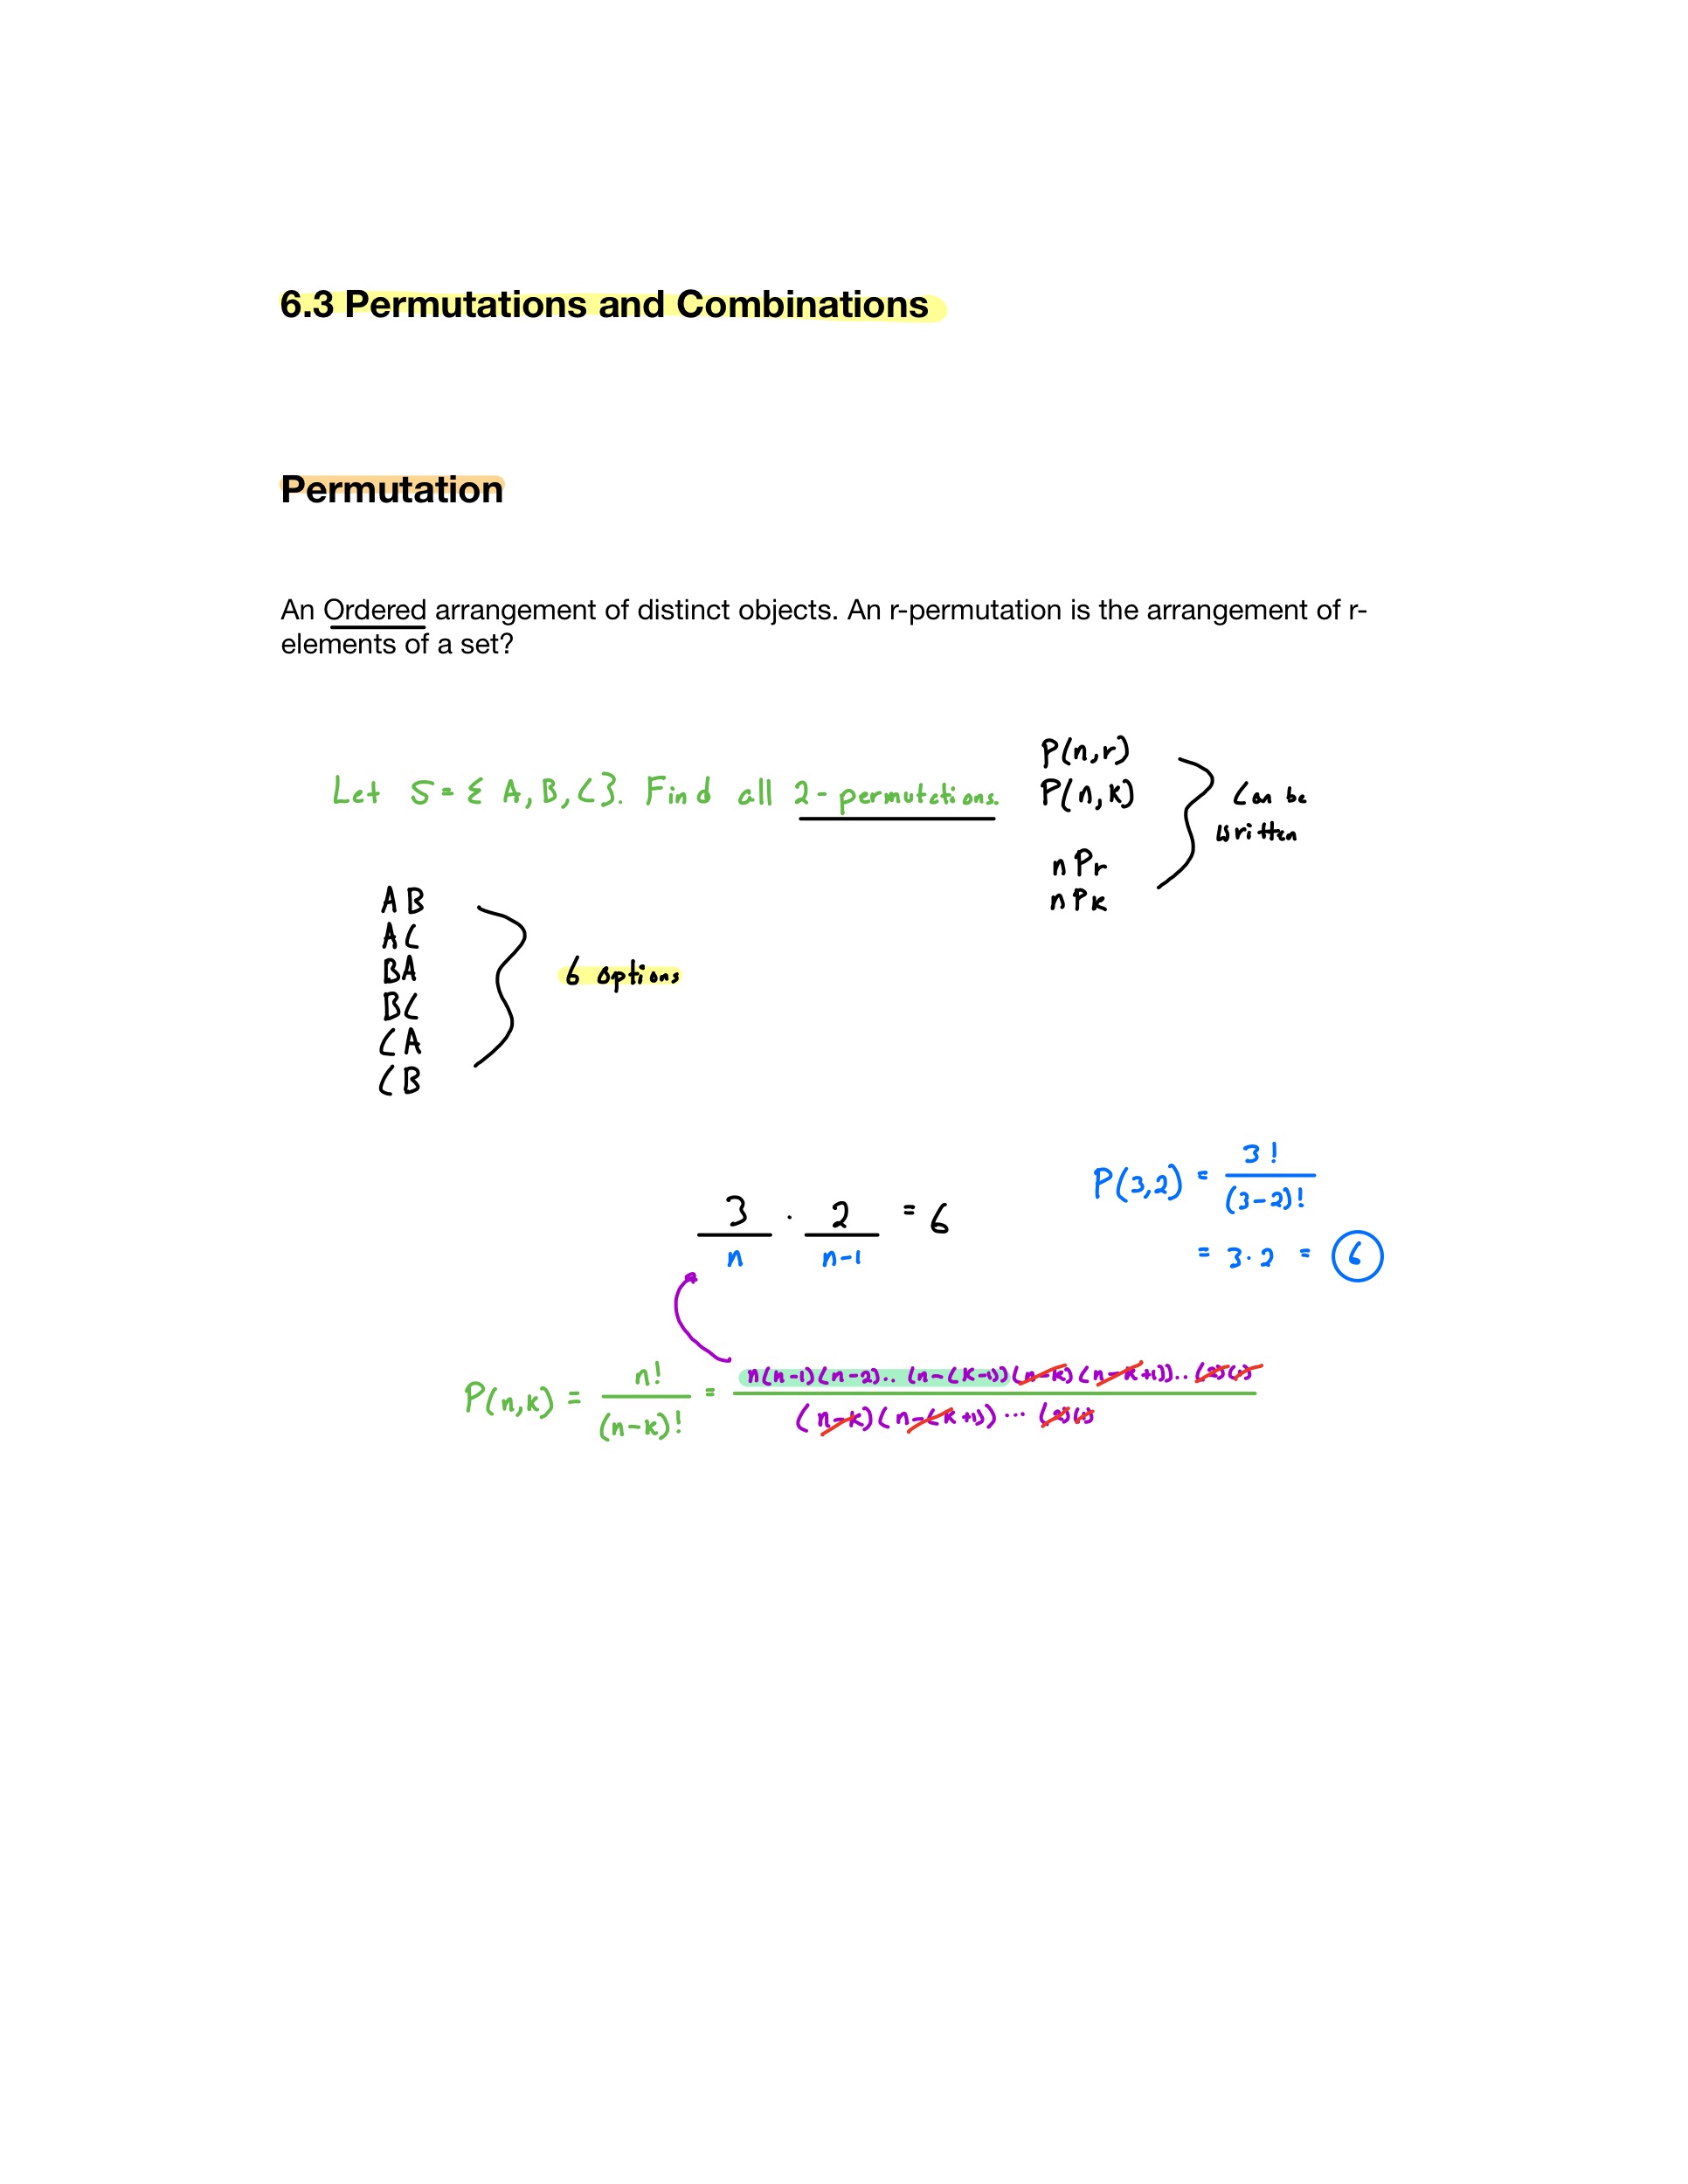 6.3 Permutations and Combinations
Permutation
An Ordered arrangement of distinct objects. An r-permutation is the arrangement of r-
elements of a set?
P(n,r)
Let S = { A, B, C }. Find all 2-permutations.
P(n,k)
Can be
written
nPr
nPk
AB
AC
BA
BC
CA
CB
6 options
3 · 2 = 6
n n-1
P(3,2) = 3! / (3-2)!
= 3·2 = 6
P(n,k) = n! / (n-k)! = n(n-1)(n-2).. (n-(k-1))(n-k)(n-k+1)).. (2)(1) / (n-k)(n-(k+1)) ... (2)(1)